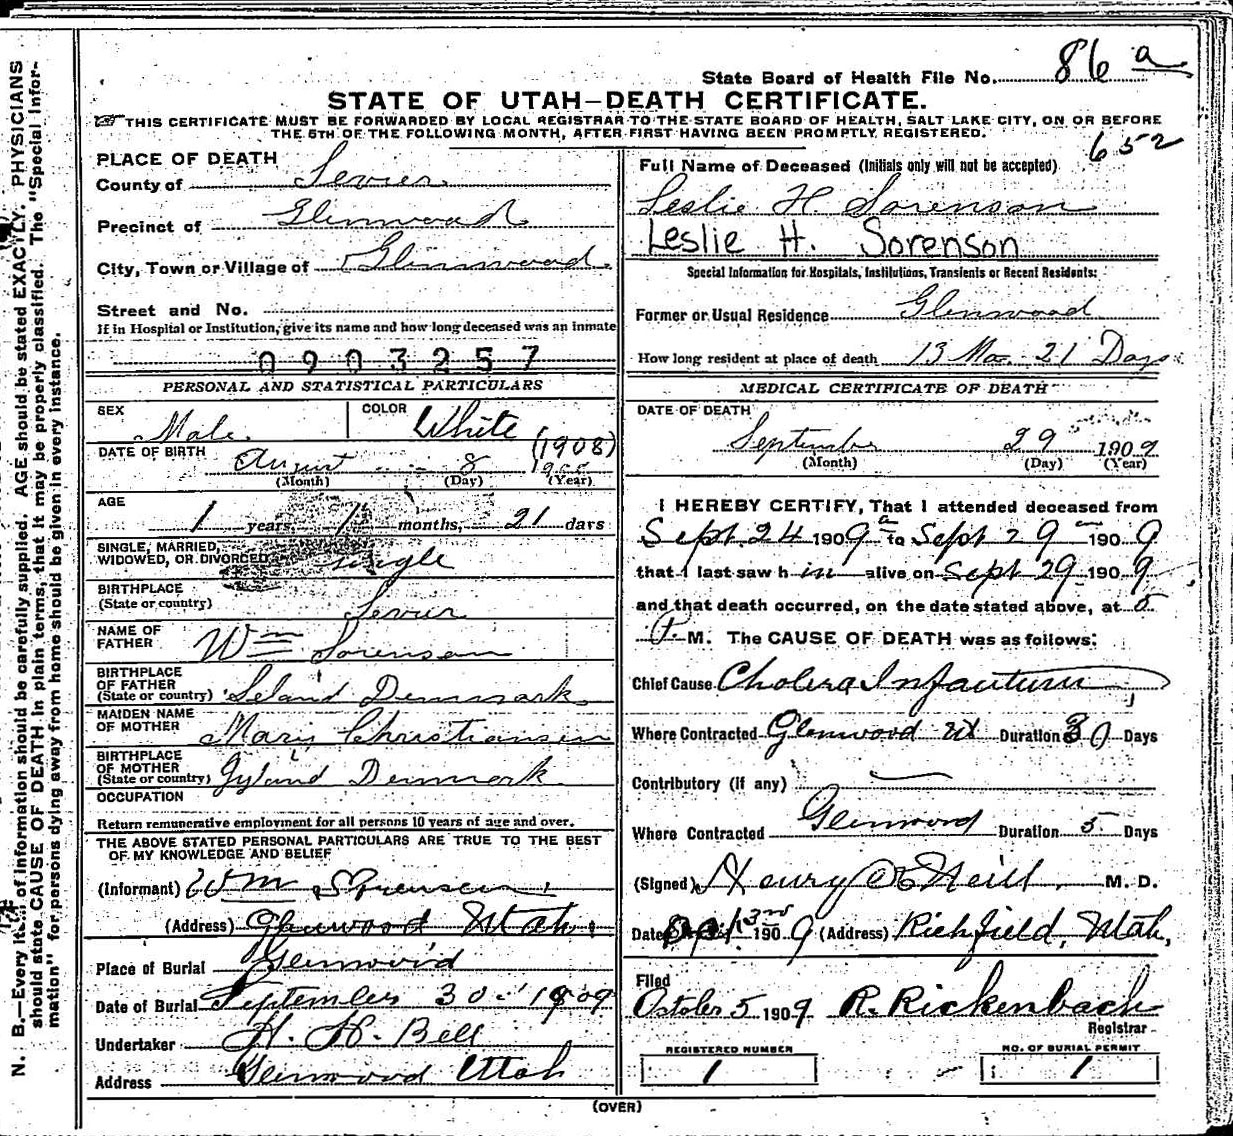 State Board of Health File No. 86 a
STATE OF UTAH—DEATH CERTIFICATE.
THIS CERTIFICATE MUST BE FORWARDED BY LOCAL REGISTRAR TO THE STATE BOARD OF HEALTH, SALT LAKE CITY, ON OR BEFORE
THE 5TH OF THE FOLLOWING MONTH, AFTER FIRST HAVING BEEN PROMPTLY REGISTERED.
652
PLACE OF DEATH
County of Sevier
Precinct of Glenwood
City, Town or Village of Glenwood
Street and No.
If in Hospital or Institution, give its name and how long deceased was an inmate
0903257
PERSONAL AND STATISTICAL PARTICULARS
SEX Male COLOR White
DATE OF BIRTH August 8 (1908)
(Month) (Day) (Year)
AGE
1 years 1 months, 21 days
SINGLE, MARRIED,
WIDOWED, OR DIVORCED single
BIRTHPLACE
(State or country) Sevier
NAME OF
FATHER Wm Sorenson
BIRTHPLACE
OF FATHER
(State or country) Seland Denmark
MAIDEN NAME
OF MOTHER Mary Christiansen
BIRTHPLACE
OF MOTHER
(State or country) Jyland Denmark
OCCUPATION
Return remunerative employment for all persons 10 years of age and over.
THE ABOVE STATED PERSONAL PARTICULARS ARE TRUE TO THE BEST
OF MY KNOWLEDGE AND BELIEF
(Informant) Wm Sorensen
(Address) Glenwood Utah.
Place of Burial Glenwood
Date of Burial September 30 1909
Undertaker H. H. Bell
Address Glenwood Utah
Full Name of Deceased (Initials only will not be accepted)
Leslie H. Sorenson
Leslie H. Sorenson
Special Information for Hospitals, Institutions, Transients or Recent Residents:
Former or Usual Residence Glenwood
How long resident at place of death 13 Mo. 21 Days
MEDICAL CERTIFICATE OF DEATH
DATE OF DEATH
September 29 1909
(Month) (Day) (Year)
I HEREBY CERTIFY, That I attended deceased from
Sept. 24 1909 to Sept 29 1909
that I last saw him alive on Sept 29 1909,
and that death occurred, on the date stated above, at 5
P. M. The CAUSE OF DEATH was as follows:
Chief Cause Cholera Infantum
Where Contracted Glenwood Ut Duration 30 Days
Contributory (if any)
Where Contracted Glenwood Duration 5 Days
(Signed) Henry O'Neill. M. D.
Date Oct 3rd 1909 (Address) Richfield, Utah,
Filed
October 5 1909 R. Rickenbach
Registrar
REGISTERED NUMBER
1
NO. OF BURIAL PERMIT
1
(OVER)
N. B.—Every item of information should be carefully supplied. AGE should be stated EXACTLY. PHYSICIANS
should state CAUSE OF DEATH in plain terms, that it may be properly classified. The "Special Infor-
mation" for persons dying away from home should be given in every instance.